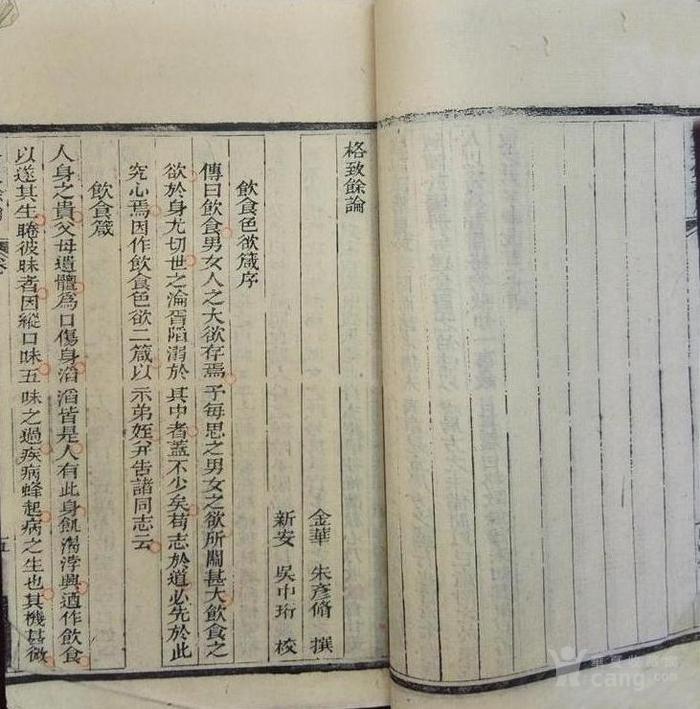 格致餘論
金華 朱彥脩 撰
新安 吳中珩 校
飲食色欲箴序
傳曰飲食男女人之大欲存焉予每思之男女之欲所關甚大飲食之
欲於身尤切世之淪胥陷溺於其中者蓋不少矣苟志於道必先於此
究心焉因作飲食色欲二箴以示弟姪并告諸同志云
飲食箴
人身之貴父母遺體為口傷身滔滔皆是人有此身飢渴洊興迺作飲食
以遂其生睠彼昧者因縱口味五味之過疾病蜂起病之生也其機甚微
cang.com